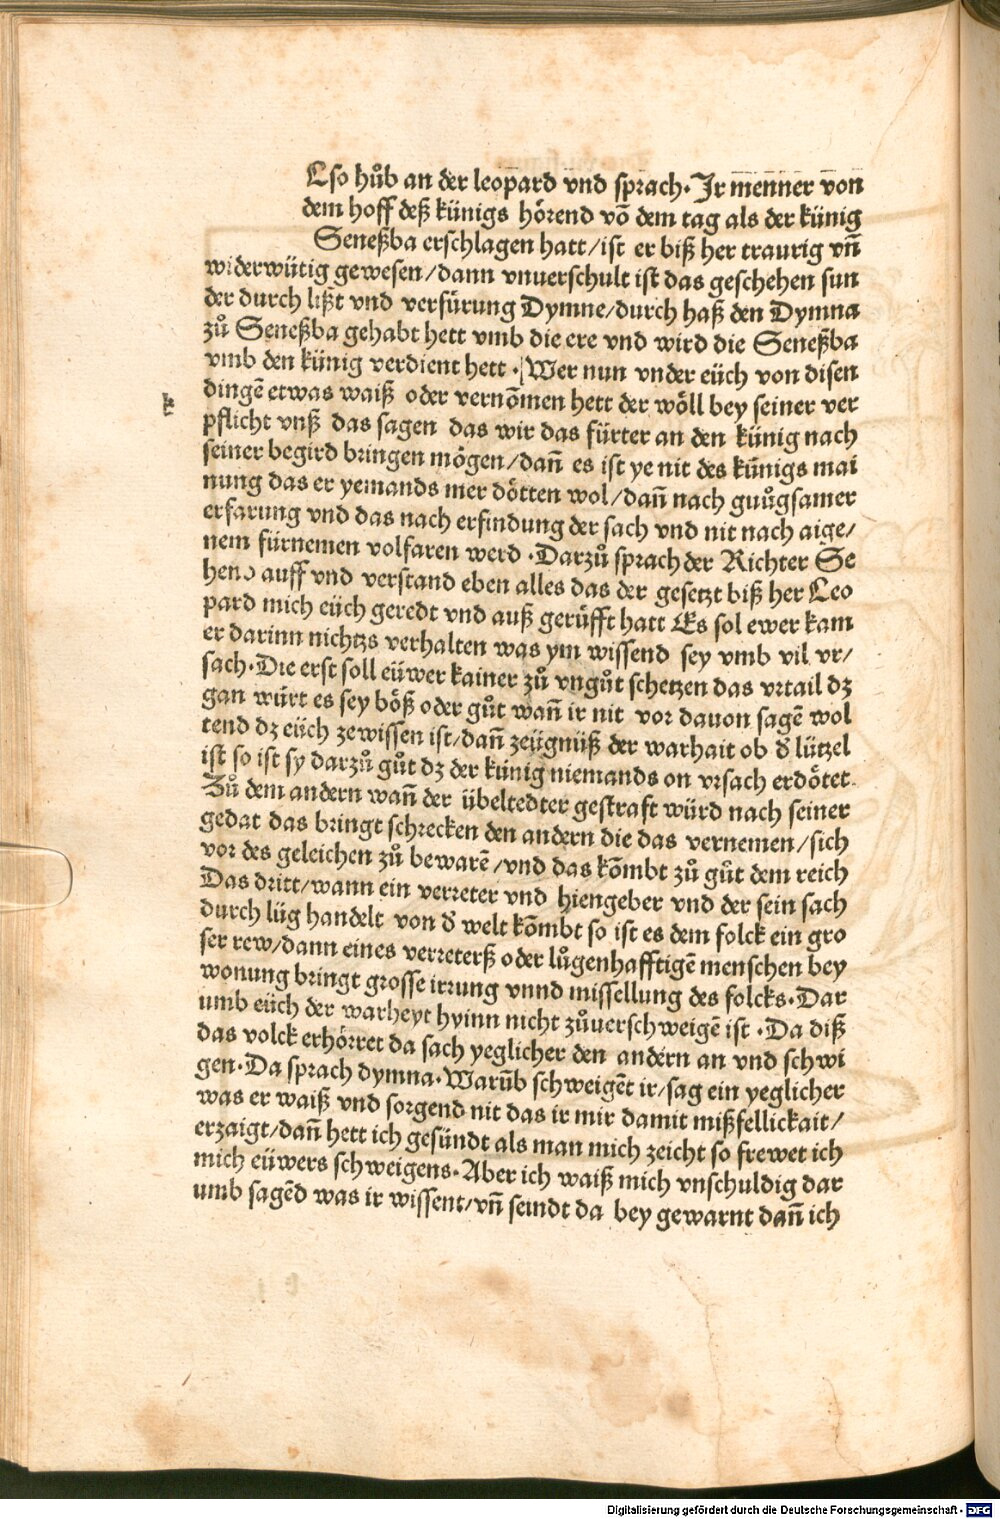 Lso hůb an der leopard vnd sprach. Jr menner von
dem hoff deß künigs hörend võ dem tag als der künig
Seneßba erschlagen hatt/ist er biß her traurig vñ
widerwütig gewesen/dann vnuerschult ist das geschehen sun
der durch lißt vnd verfürung Dymne/durch haß den Dymna
zů Seneßba gehabt hett vmb die ere vnd wird die Seneßba
vmb den künig verdient hett. Wer nun vnder eüch von disen
dingẽ etwas waiß oder vernõmen hett der wöll bey seiner ver
pflicht vnß das sagen das wir das fürter an den künig nach
seiner begird bringen mögen/dañ es ist ye nit des künigs mai
nung das er yemands mer dötten wol/dañ nach guůgsamer
erfarung vnd das nach erfindung der sach vnd nit nach aige/
nem fürnemen volfaren werd. Darzů sprach der Richter Se
hend auff vnd verstand eben alles das der gesetzt biß her Leo
pard mich eüch geredt vnd auß gerüfft hatt Es sol ewer kam
er darinn nichtzs verhalten was ym wissend sey vmb vil vr/
sach. Die erst soll eüwer kainer zů vngůt schetzen das vrtail dz
gan würt es sey böß oder gůt wañ ir nit vor dauon sagẽ wol
tend dz eüch zewissen ist/dañ zeügnüß der warhait ob d̃ lützel
ist so ist sy darzů gůt dz der künig niemands on vrsach erdötet.
Zů dem andern wañ der übeltedter gestraft würd nach seiner
gedat das bringt schrecken den andern die das vernemen/sich
vor des geleichen zů bewarẽ/vnd das kõmbt zů gůt dem reich
Das dritt/wann ein verreter vnd hiengeber vnd der sein sach
durch lüg handelt von d̃ welt kõmbt so ist es dem folck ein gro
ser rew/dann eines verreterß oder lůgenhafftigẽ menschen bey
wonung bringt grosse irrung vnnd missellung des folcks. Dar
umb eüch der warheyt hyinn nicht zůuerschweigẽ ist. Da diß
das volck erhörret da sach yeglicher den andern an vnd schwi
gen. Da sprach dymna. Warũb schweigẽt ir/sag ein yeglicher
was er waiß vnd sorgend nit das ir mir damit mißfellickait/
erzaigt/dañ hett ich gesündt als man mich zeicht so frewet ich
mich eüwers schweigens. Aber ich waiß mich vnschuldig dar
umb sagẽd was ir wissent/vñ seindt da bey gewarnt dañ ich
Digitalisierung gefördert durch die Deutsche Forschungsgemeinschaft - DFG